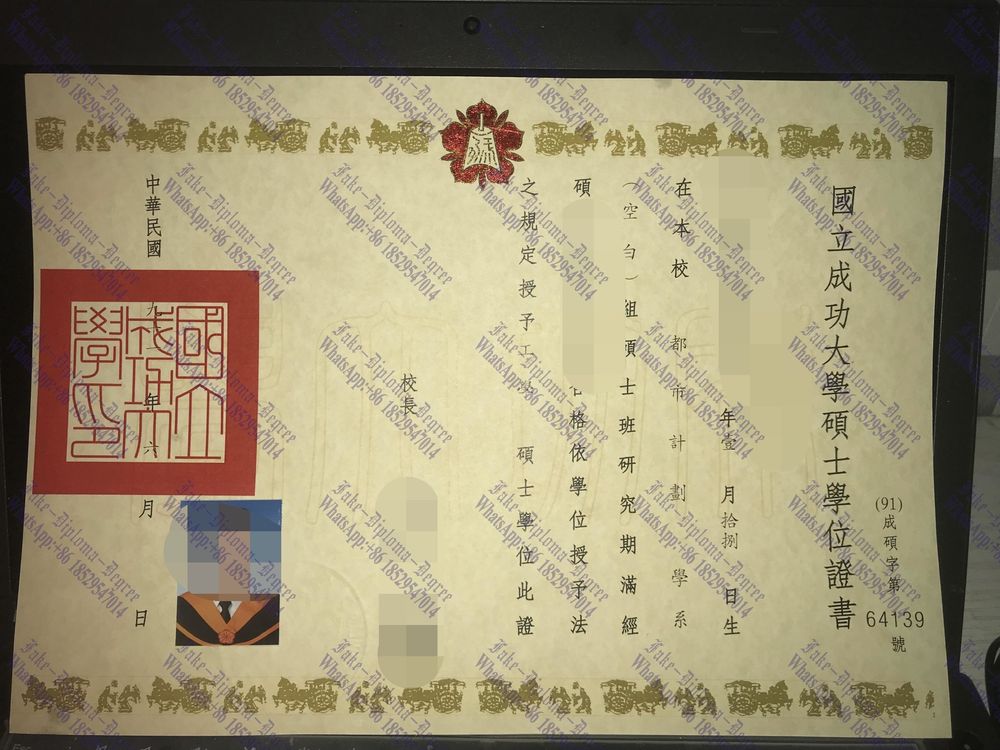 國立成功大學碩士學位證書
(91)成碩字第
64139
號
年壹月拾捌日生
在本校都市計劃學系
(空白)組碩士班研究期滿經
碩
格依學位授予法
之規定授予工學碩士學位此證
校長
中華民國
九十一年六月
日
國立成功大學印
Fake-Diploma-Degree
WhatsApp:+86 18529547014